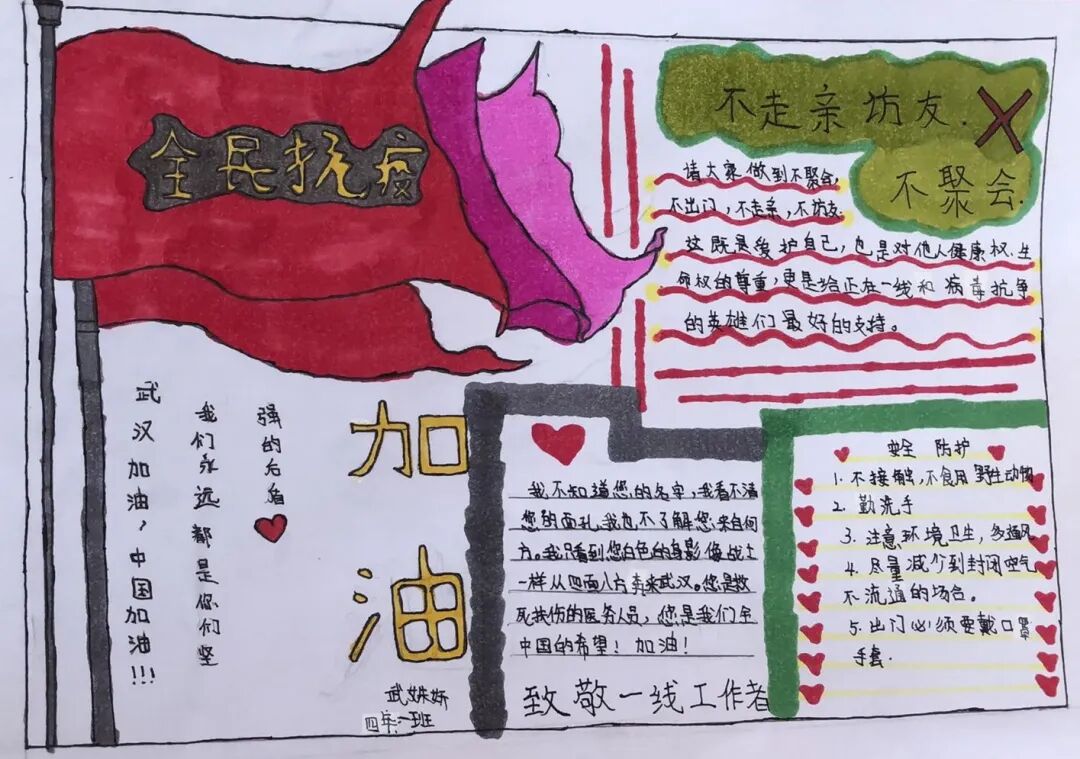 全民抗疫
不走亲访友.
不聚会.
请大家做到不聚会,
不出门,不走亲,不访友.
这既是爱护自己,也是对他人健康权、生
命权的尊重,更是给正在一线和病毒抗争
的英雄们最好的支持。
武汉加油,中国加油!!!
我们永远都是你们坚
强的后盾
加油
武姝妍
四年一班
我不知道您的名字,我看不清
您的面孔,我也不了解您来自何
方。我只看到您白色的身影像战士
一样从四面八方奔来武汉。您是救
死扶伤的医务人员,您是我们全
中国的希望!加油!
致敬一线工作者
安全防护
1.不接触,不食用野生动物
2.勤洗手
3.注意环境卫生,多通风
4.尽量减少到封闭空气
不流通的场合。
5.出门必须要戴口罩
手套.